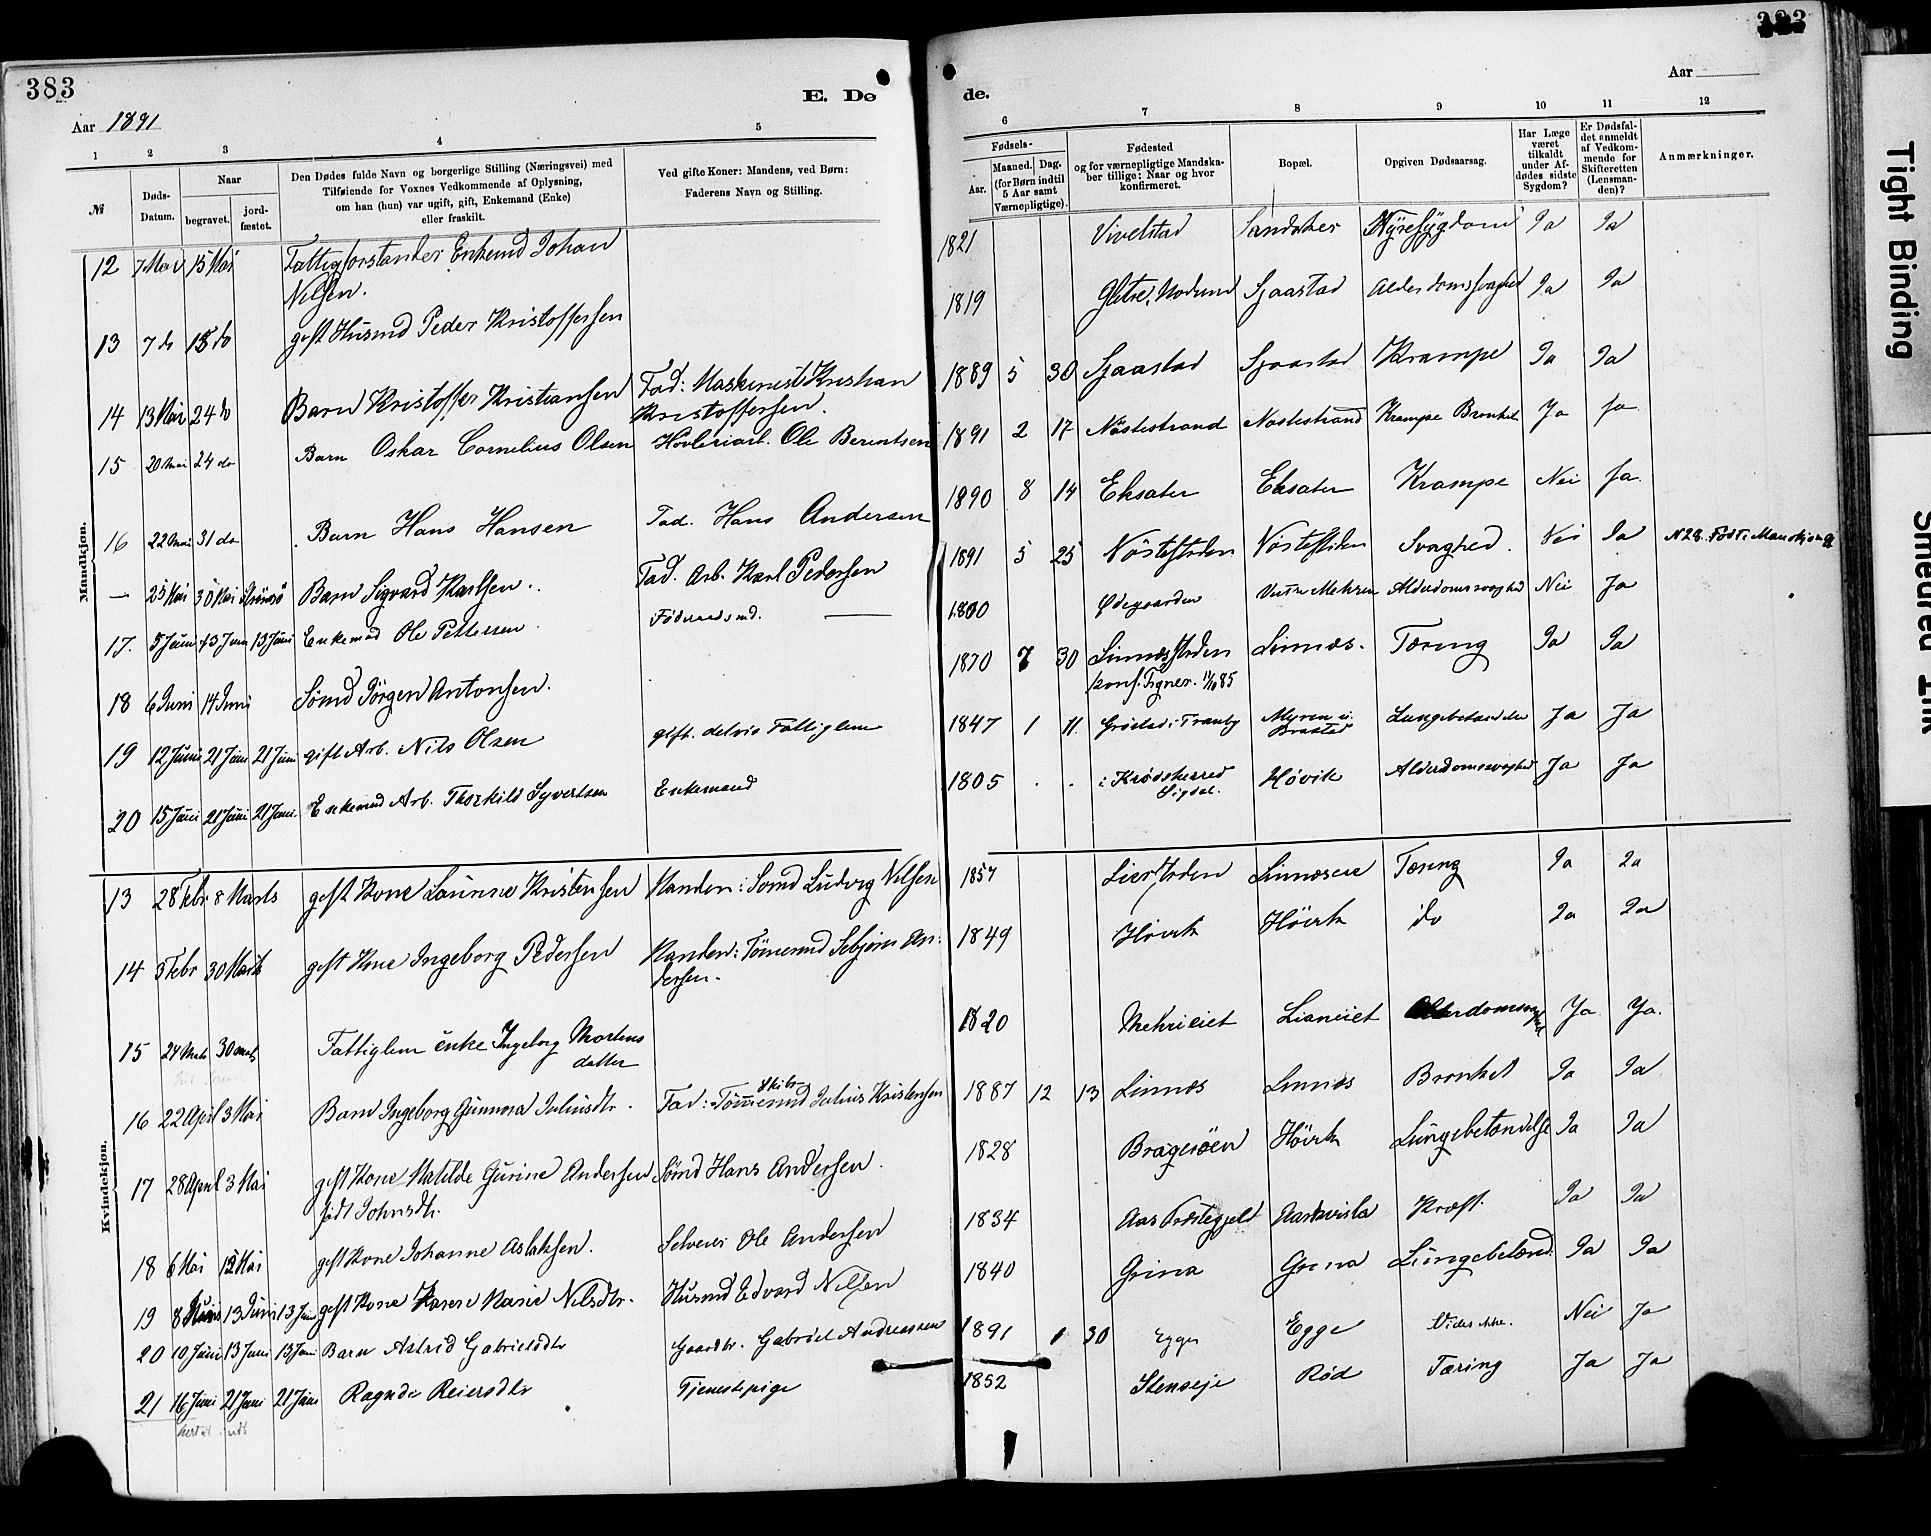 383
E. Dø
Aar 1891
1 2 3 4 5
№
Døds-Datum.
Naar
begravet.
jord-fæstet.
Den Dødes fulde Navn og borgerlige Stilling (Næringsvei) med
Tilføiende for Voxnes Vedkommende af Oplysning,
om han (hun) var ugift, gift, Enkemand (Enke)
eller fraskilt.
Ved gifte Koner: Mandens, ved Børn:
Faderens Navn og Stilling.
Mandkjøn.
12 7 Mai 15 Mai Fattigforstander Enkemd Johan
Nilsen.
13 7 do 18 do gift Husmd Peder Kristoffersen
14 13 Mai 24 do Barn Kristoffer Kristiansen Fad: Maskinist Kristian
Kristoffersen.
15 20 Mai 24 do Barn Oskar Cornelius Olsen Høvleriarb. Ole Berentsen
16 22 Mai 31 do Barn Hans Hansen Fad. Hans Andersen
— 25 Mai 30 Mai Barn Sigvard Karlsen. Fad. Arb. Karl Pedersen
17. 5 Juni 13 Juni 13 Juni Enkemd Ole Pettersen. Føderaadsmd. —
18 6 Juni 14 Juni Sømd Jörgen Antonsen.
19 12 Juni 21 Juni 21 Juni gift Arb. Nils Olsen gift. delvis Fattiglem
20 15 Juni 21 Juni 21 Juni Enkemd Arb. Thorkild Syvertsen Enkemand
Kvindekjøn.
13 28 Febr. 8 Marts gift Kone Laurine Kristensen Manden: Sømd Ludvig Nilsen
14 3 Febr 30 Marts gift Kone Ingeborg Pedersen Manden: Tømmermd Sebjørn An-
dersen.
15 24 Mats 30 mats Fattiglem enke Ingeborg Mortens
datter
16 22 April 3 Mai Barn Ingeborg Gunnora Juliusdtr. Fad: Skibs Tömmermd Julius Kristensen
17 28 April 3 Mai gift Kone Matilde Gurine Andersen Sømd Hans Andersen.
født Johnsdtr.
18 6 Mai 12 Mai gift Kone Johanne Aslaksen. Selveier Ole Andersen
19 8 Juni 13 Juni 13 Juni gift Kone Karen Marie Nilsdtr. Husmd Edvard Nilsen
20 10 Juni 13 Juni 13 Juni Barn Astrid Gabrielsdtr Gaardbr. Gabriel Andreassen
21 16 Juni 21 Juni 21 Juni Ragnde Reiersdtr Tjenestepige
383
de.
Aar
6 7 8 9 10 11 12
Fødsels-
Aar.
Maaned. Dag.
(for Børn indtil
5 Aar samt
Værnepligtige).
Fødested
og for værnepligtige Mandska-
ber tillige: Naar og hvor
konfirmeret.
Bopæl.
Opgiven Dødsaarsag.
Har Læge
været
tilkaldt
under Af-
dødes sidste
Sygdom?
Er Dødsfal-
det anmeldt
af Vedkom-
mende for
Skifteretten
(Lensman-
den)?
Anmærkninger.
1821 Vivelstad Sandaker Nyresygdom Ja Ja
1819 Glitre, Modum Sjaastad Alderdomssvaghed Ja Ja
1889 5 30 Sjaastad Sjaastad Krampe Ja Ja
1891 2 17 Nøstestrand Nøstestrand Krampe Bronkit Ja Ja
1890 8 14 Eksater Eksater Krampe Nei Ja.
1891 5 25 Nöstestrden Nöstestrden Svaghed. Nei Ja N 28. Födte Mandkjøn
1800 Ødegaarden Mehren Alderdomssvaghed Nei Ja
1870 7 30 Linnesstrden Linnæs. Tæring Ja Ja
konf. Tegner. 11/10 85
1847 1 11. i Tranby Myren u. Lungebetændelse Ja Ja
Brastad
1805 . . i Krødsherred Høvik Alderdomssvaghed Ja Ja
Sigdal.
1857 Lierstrden Linneseie Tæring Ja Ja
1849 Høvik Høvik do Ja Ja
1820 Mehrieiet Lianeiet Alderdomssvaghed Ja Ja.
1887 12 13 Linnes Linnes Bronkit Ja Ja
1828 Bragerøen Høvik Lungebetændelse Ja Ja
1834 Aas Prestegjeld Aaskvisla Kræft. Ja Ja
1840 Grina Grina Lungebetænd. Ja Ja
1891 1 30 Egge Egge Vides ikke. Nei Ja
1852 Stenseje Rød Tæring Ja Ja
Tight Binding
Smeared Ink